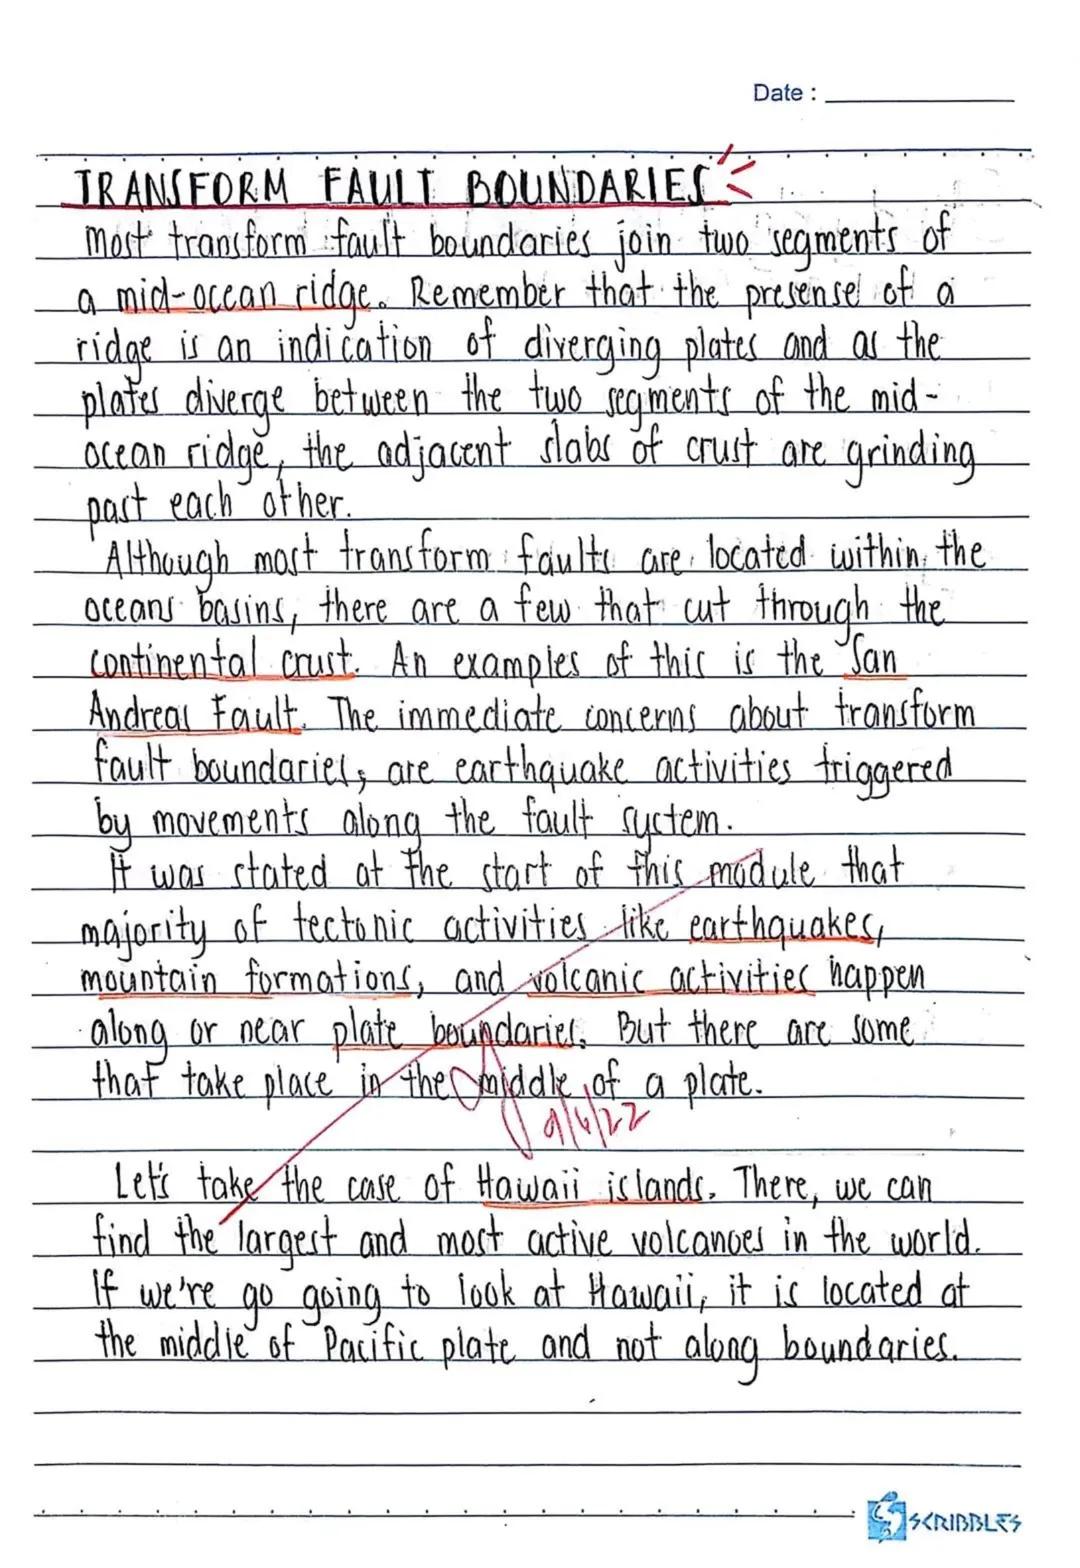 Date :
TRANSFORM FAULT BOUNDARIES
Most transform fault boundaries join two segments of
a mid-ocean ridge. Remember that the presense of a
ridge is an indication of diverging plates and as the
plates diverge between the two segments of the mid-
ocean ridge, the adjacent slabs of crust are grinding
past each other.
Although most transform faults are located within the
oceans basins, there are a few that cut through the
continental crust. An examples of this is the San
Andreas Fault. The immediate concerns about transform
fault boundaries, are earthquake activities triggered
by movements along the fault system.
It was stated at the start of this module that
majority of tectonic activities like earthquakes,
mountain formations, and volcanic activities happen
along or near plate boundaries. But there are some
that take place in the middle of a plate.
9/6/22
Let's take the case of Hawaii islands. There, we can
find the largest and most active volcanoes in the world.
If we're go going to look at Hawaii, it is located at
the middle of Pacific plate and not along boundaries.
SCRIBBLES